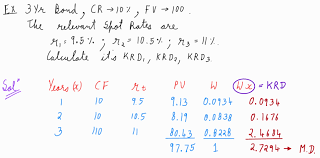 Ex. 3 Yr Bond, CR → 10%, FV → 100.
The relevant Spot Rates are
r₁ = 9.5%; r₂ = 10.5%; r₃ = 11%
Calculate it's KRD₁, KRD₂, KRD₃
Solⁿ Years(x) CF r₀ PV W Wx = KRD
1 10 9.5 9.13 0.0934 0.0934
2 10 10.5 8.19 0.0838 0.1676
3 110 11 80.43 0.8228 2.4684
97.75 1 2.7294 → M.D.